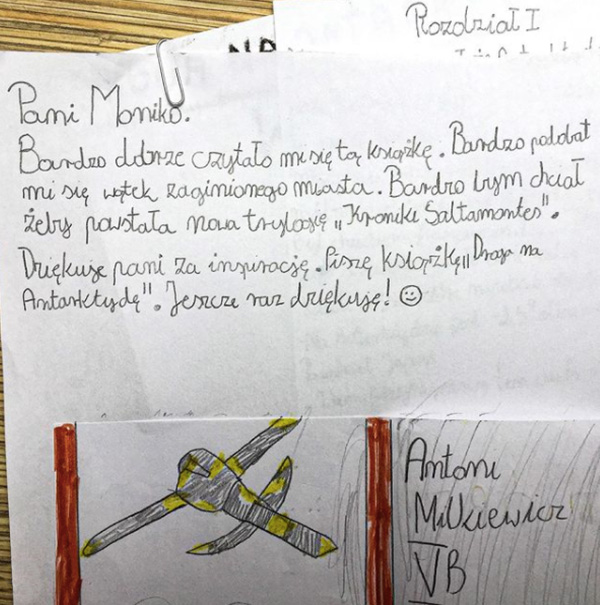 Rozdział I
Pani Moniko.
Bardzo dobrze czytało mi się tą książkę. Bardzo podobał
mi się wątek zaginionego miasta. Bardzo bym chciał
żeby powstała nowa trylogię „Kroniki Saltamontes".
Dziękuje pani za inspirację. Piszę książkę „Droga na
Antarktydę". Jeszcze raz dziękuję! ☺
Antoni
Milkiewicz
VB